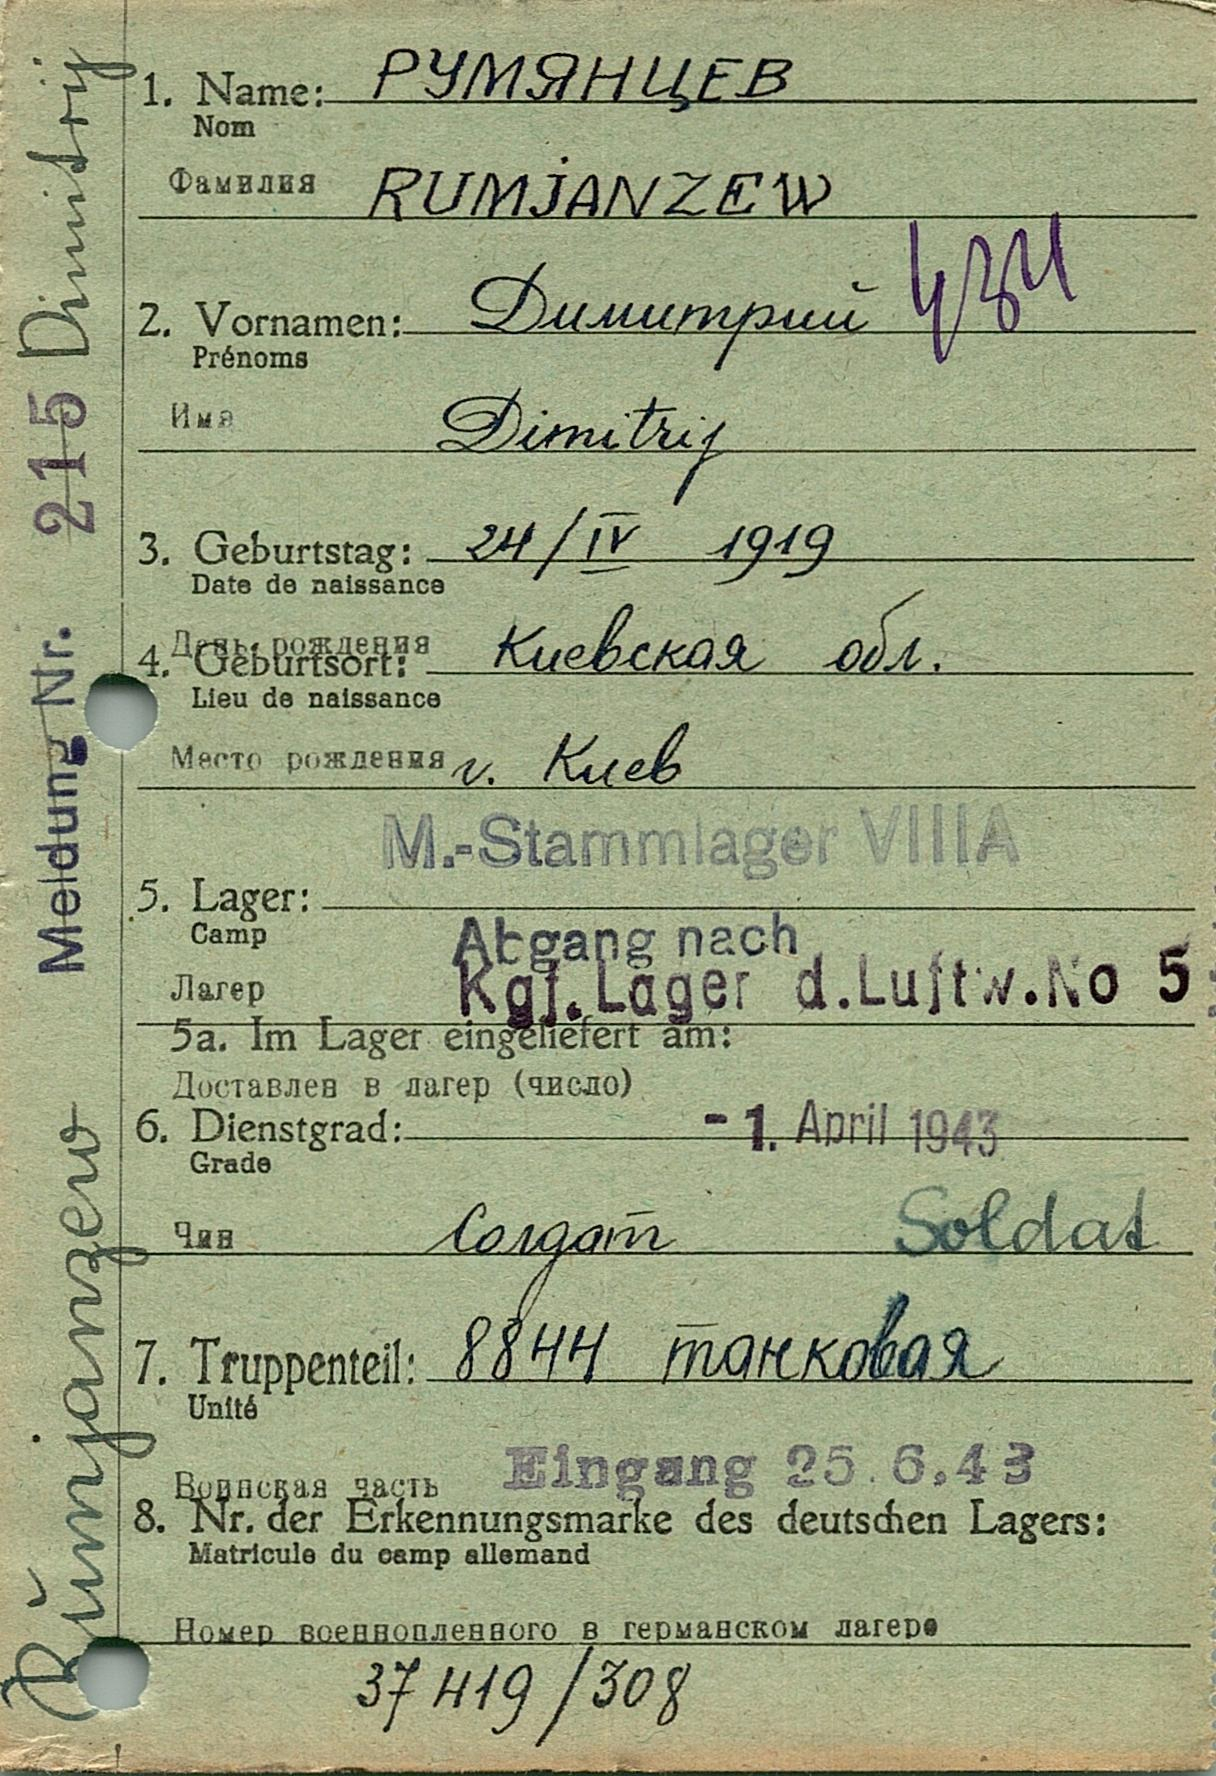 1. Name: РУМЯНЦЕВ
Nom
Фамилия RUMJANZEW
434
2. Vornamen: Димитрий
Prénoms
Имя Dimitrij
3. Geburtstag: 24/IV 1919
Date de naissance
День рождения
4. Geburtsort: Киевская обл.
Lieu de naissance
Место рождения г. Киев
M.-Stammlager VIIIA
5. Lager:
Camp
Abgang nach
Лагер Kgf. Lager d. Luftw. No 5
5a. Im Lager eingeliefert am:
Доставлен в лагер (число)
6. Dienstgrad: - 1. April 1943
Grade
Чин Солдат Soldat
7. Truppenteil: 8844 танковая
Unité
Eingang 25.6.43
Воинская часть
8. Nr. der Erkennungsmarke des deutschen Lagers:
Matricule du camp allemand
Номер военнопленного в германском лагере
37419/308
Rŭmjanzew Meldung Nr. 215 Dimitrij